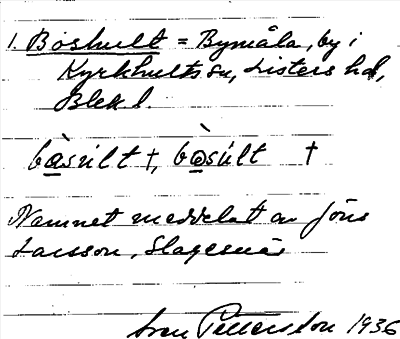 1. Boshult = Bymåla, by i
Kyrkhults sn, Listers hd,
Blek l.
bò̲súlt †, bò̲súlt †
Namnet meddelat av Jöns
Larsson, Slagesnäs
Sven Pettersson 1936